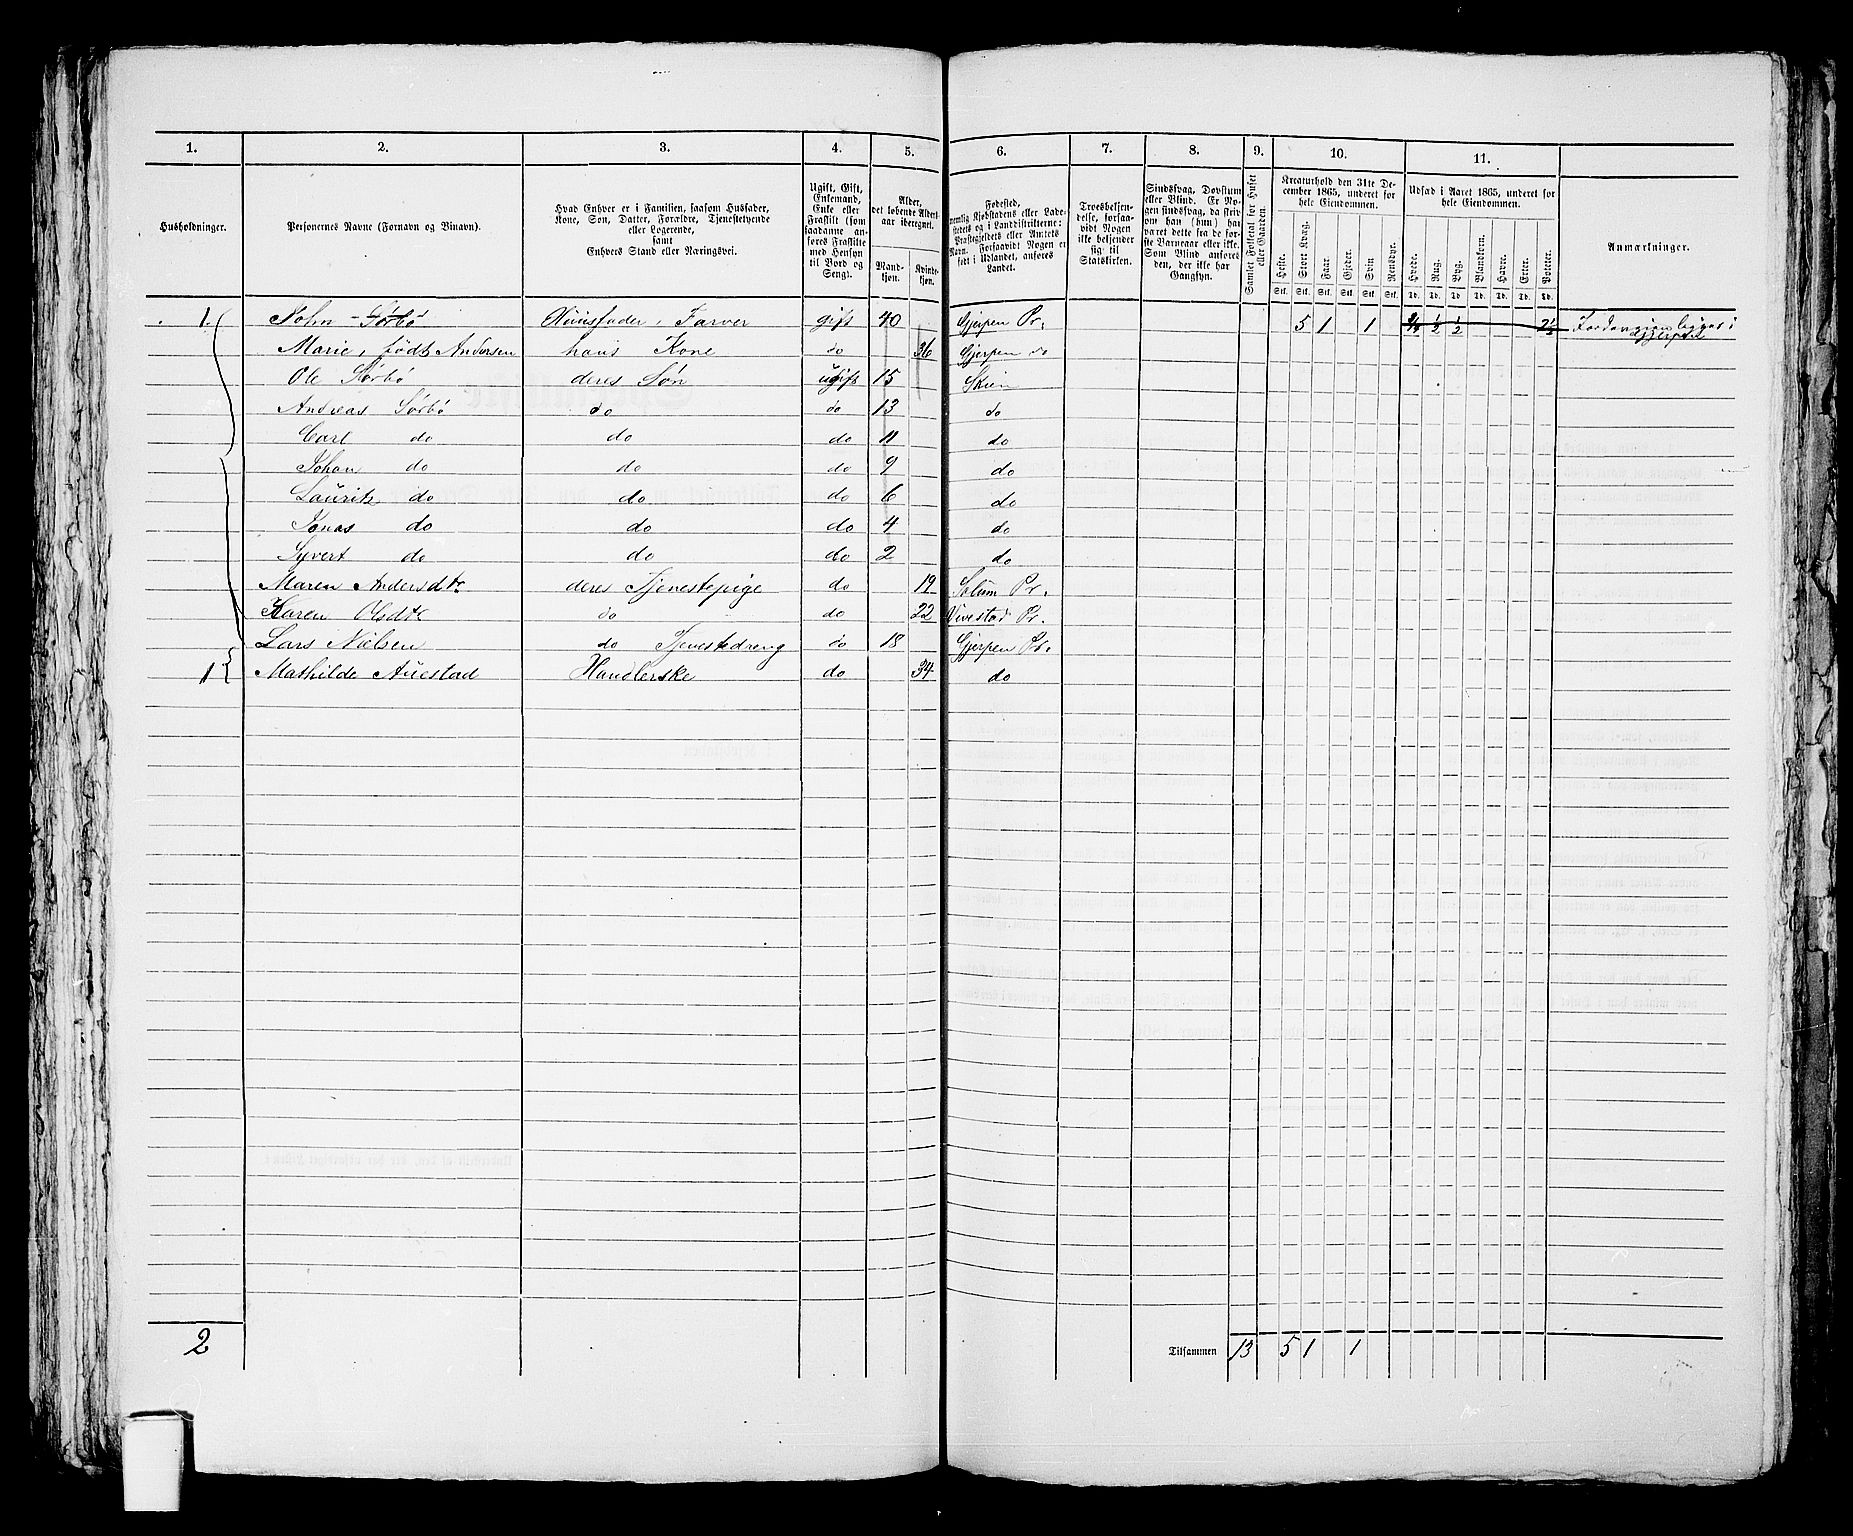 1. 2. 3. 4. 5. 6. 7. 8. 9. 10. 11.
Husholdninger.
Personernes Navne (Fornavn og Binavn).
Hvad Enhver er i Familien, saasom Husfader,
Kone, Søn, Datter, Forældre, Tjenestetyende
eller Logerende,
samt
Enhvers Stand eller Næringsvei.
Ugift, Gift,
Enkemand,
Enke eller
Fraskilt (som
saadanne an-
føres Fraskilte
med Hensyn
til Bord og
Seng).
Alder,
det løbende Alders-
aar iberegnet.
Mand-
kjøn.
Kvinde-
kjøn.
Fødested,
nemlig Kjøbstadens eller Lade-
stedets og i Landdistrikterne:
Præstegjeldets eller Annexets
Navn. Forsaavidt Nogen er
født i Udlandet, anføres
Landet.
Troesbekjen-
delse, forsaa-
vidt Nogen
ikke bekjender
sig til
Statskirken.
Sindssvag, Døvstum
eller Blind. Er No-
gen sindssvag, da skriv
om han (hun) har
været dette fra de før-
ste Barneaar eller ikke.
Som Blind anføres
den, der ikke har
Gangsyn.
Samlet Folketal for Huset
eller Gaarden.
Kreaturhold den 31te De-
cember 1865, underet for
hele Eiendommen.
Heste. Stort Kvæg. Faar. Gjeder. Svin. Rensdyr.
Stk. Stk. Stk. Stk. Stk. Stk.
Udsæd i Aaret 1865, underet for
hele Eiendommen.
Hvede. Rug. Byg. Blandkorn. Havre. Erter. Poteter.
Td. Td. Td. Td. Td. Td. Td.
Anmærkninger.
1. John Sørbø Huusfader, Farver gift 40 Gjerpen Pr. 5 1 1 ½ ½
Marie, født Andersen hans Kone do 36 Gjerpen do
Ole Sørbø deres Søn ugift 15 Skien
Andreas Sørbø do do 13 do
Carl do do do 11 do
Johan do do do 9 do
Lauritz do do do 6 do
Jonas do do do 4 do
Syvert do do do 2 do
Maren Andersdtr deres Tjenestepige do 19 Solum Pr.
Karen Olsdtr do do 22 Pr.
Lars Nielsen do Tjenestedreng do 18 Gjerpen Pr.
1 Mathilde Auestad Handlerske do 34 do
2 Tilsammen 13 5 1 1